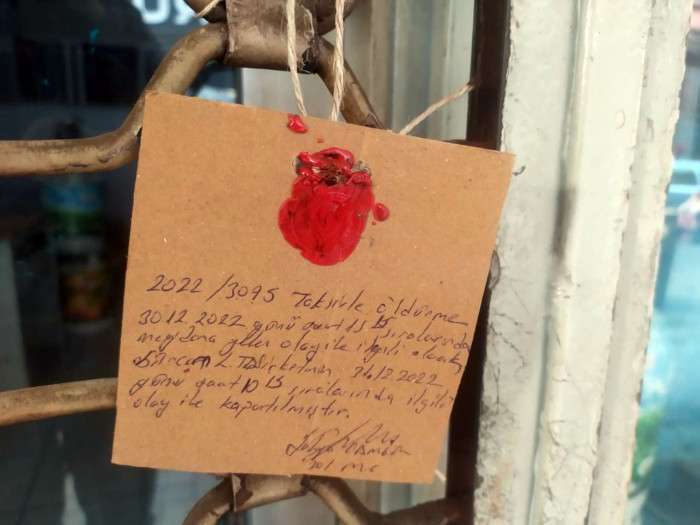 2022/3095 Taksirle öldürme
30.12.2022 günü saat 15 15 sıralarında
meydana gelen olay ile ilgili olarak
26.12.2022
günü saat 10 15 sıralarında ilgili
olay ile kapatılmıştır.